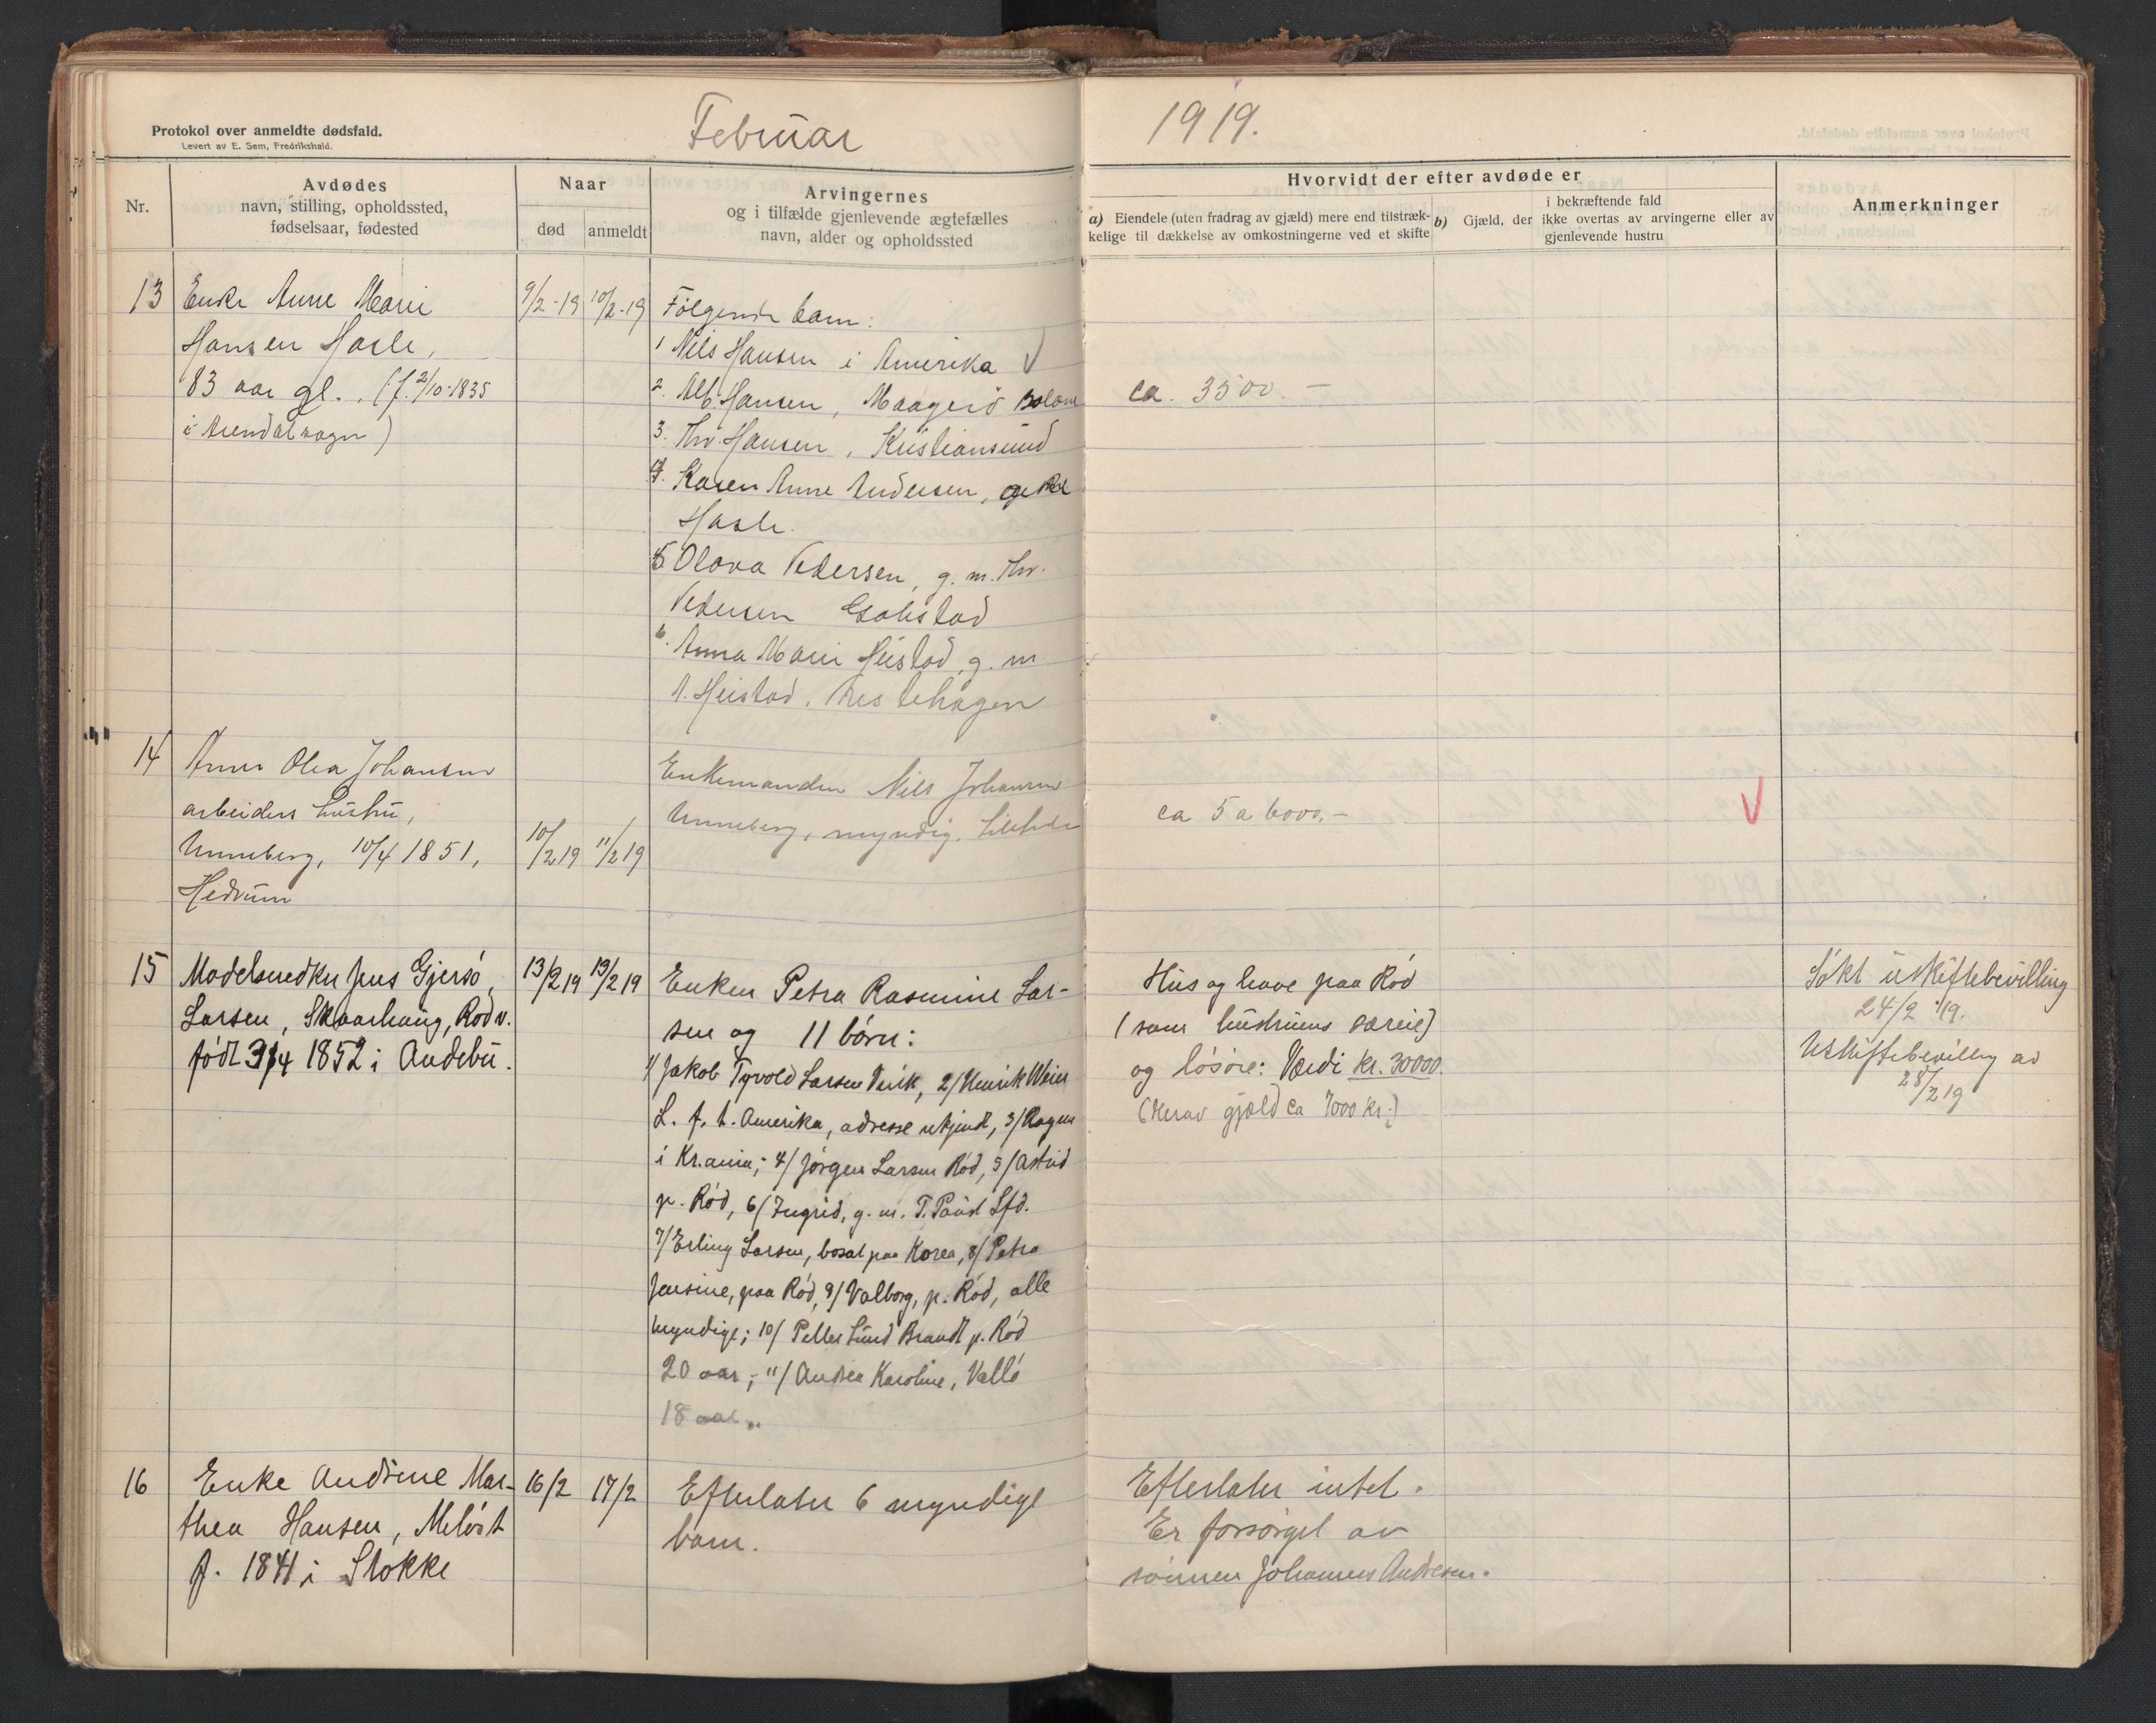 Februar
1919.
Protokol over anmeldte dødsfald.
Levert av E. Sem, Fredrikshald.
Nr.
Avdødes
navn, stilling, opholdssted,
fødselsaar, fødested
Naar
død
anmeldt
Arvingernes
og i tilfælde gjenlevende ægtefælles
navn, alder og opholdssted
Hvorvidt der efter avdøde er
a) Eiendele (uten fradrag av gjæld) mere end tilstræk-
kelige til dækkelse av omkostningerne ved et skifte
b) Gjæld, der i bekræftende fald
ikke overtas av arvingerne eller av
gjenlevende hustru
Anmerkninger
13
Enke Anne Marie
Hansen Hasle,
83 aar gl., (f. 2/10-1835
i Arendal sogn)
9/2-19
10/2-19
Følgende barn:
1 Nils Hansen i Amerika
2. Alb. Hansen, Maagerø
3. Thv. Hansen, Kristiansund
4. Karen Anne Andersen,
Hasle.
5. Olava Pedersen, g. m. Thv.
Pedersen Gokstad
6. Anna Marie Heistad, g. m.
A. Heistad,
ca. 3500.—
14
Anne Olea Johansen
arbeiders hustru,
Unneberg, 10/4 1851,
Hedrum
10/2 19
11/2 19
Enkemanden Nils Johansen
Unneberg, myndig.
ca 5 a 6000.-
15
Modelsnedker Jens Gjersø
Larsen, Skaarhaug, Rød v.
født 3/4 1852 i Andebu.
13/2 19
13/2 19
Enken Petra Rasmine Lar-
sen og 11 børn:
1/ Jakob Tyvold Larsen Virik, 2/ Henrik Weier
L. f. t. Amerika, adresse ukjendt, 3/ Ragna
i Kr.ania; 4/ Jørgen Larsen Rød, 5/ Astrid
p. Rød, 6/ Ingrid, g. m. T. Paust Sfd.
7/ Erling Larsen, bosat paa Korea, 8/ Petra
Jensine, paa Rød, 9/ Valborg, p. Rød, alle
myndige; 10/ Peller Lund Brandt p. Rød
20 aar; 11/ Andrea Karoline, Vallø
18 aar.
Hus og have paa Rød
(som hustruens særeie)
og løsøre: Værdi kr. 30000.
(Herav gjæld ca 7000 kr.)
Søkt uskiftebevilling
24/2 19.
Uskiftebevilling av
28/2 19
16
Enke Andrine Mar-
thea Hansen, Meløst
f. 1841 i Stokke
16/2
17/2
Efterlater 6 myndige
barn.
Efterlater intet.
Er forsørget av
sønnen Johannes Andresen.